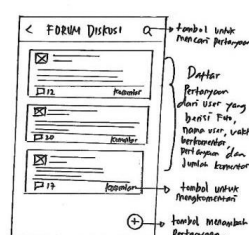 < FORUM DISKUSI
tombol untuk
mencari pertanyaan
12 komentar
20 komentar
17 komentar
Daftar
Pertanyaan
dari user yang
berisi Foto,
nama user, wakt
berkomentar
pertanyaan dan
Jumlah komentar
tombol untuk
mengkomentari
+
tombol menambah
pertanyaan